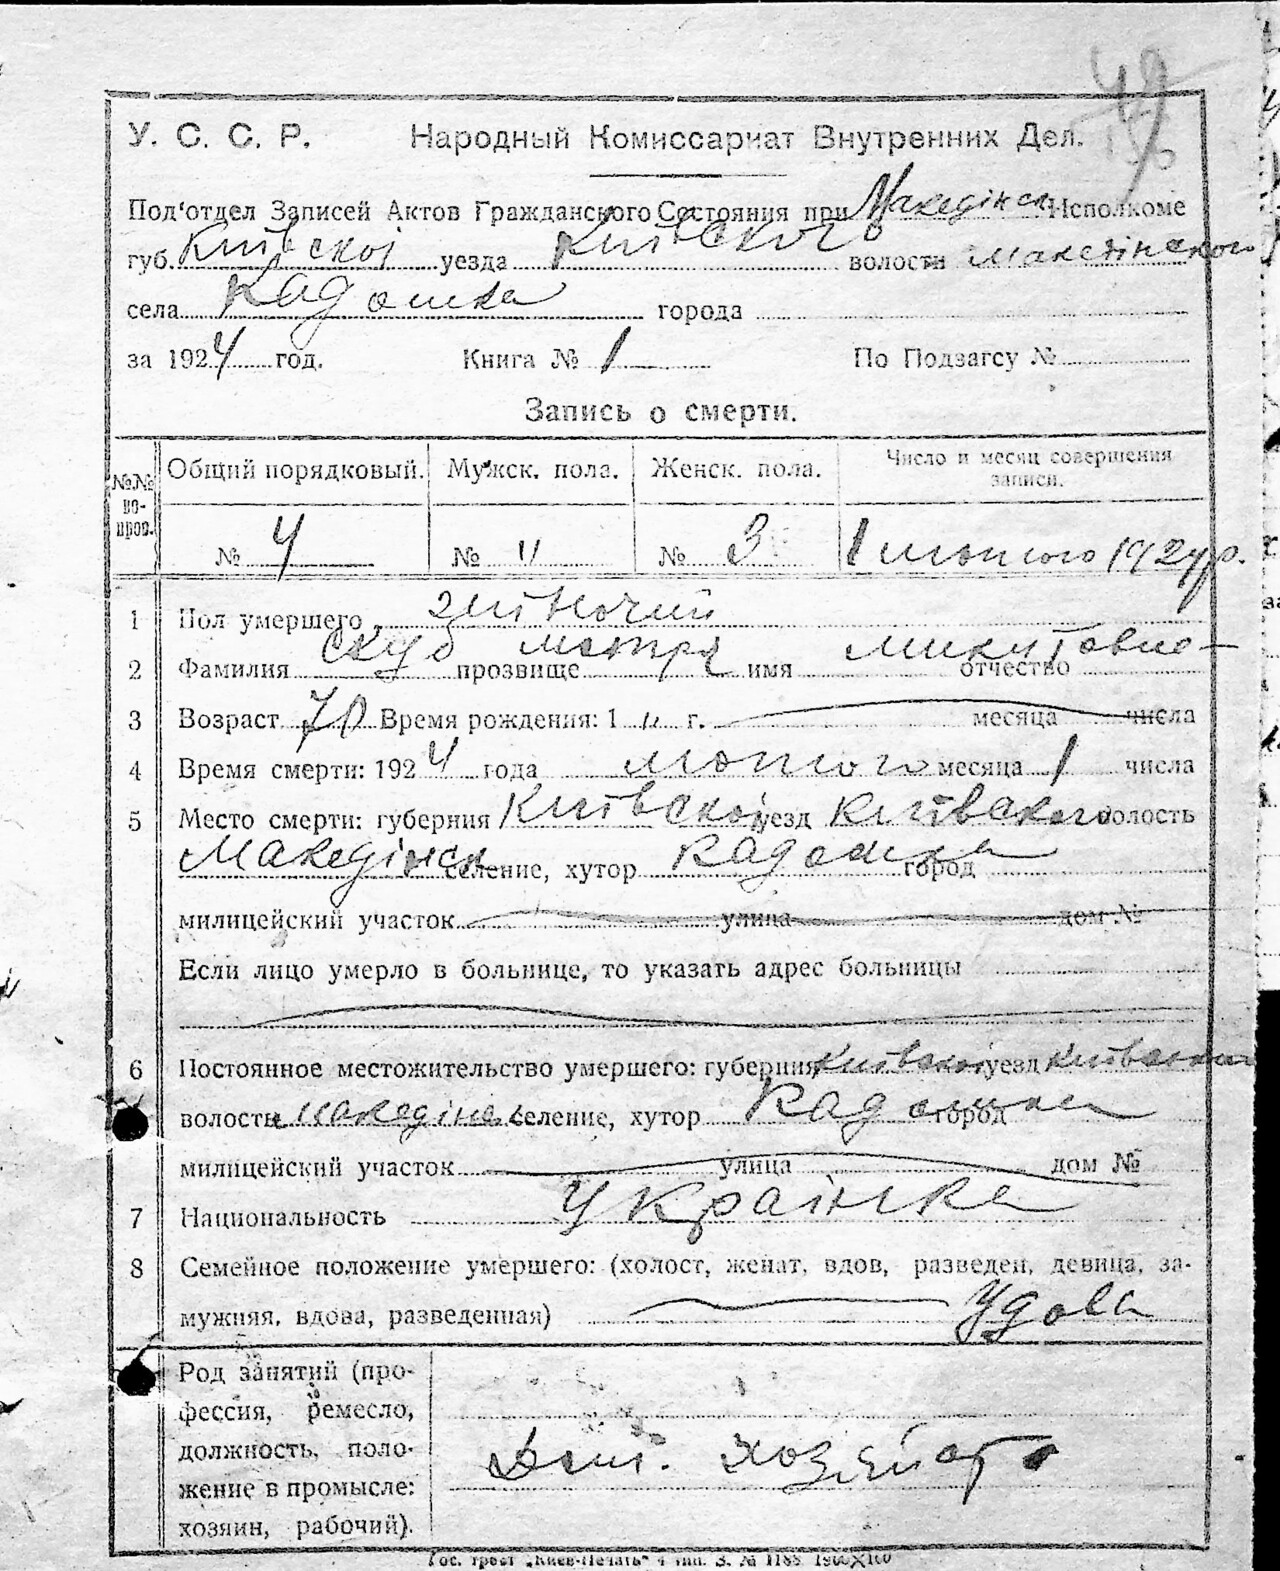 49
У. С. С. Р. Народный Комиссариат Внутренних Дел.
Под'отдел Записей Актов Гражданского Состояния при Македінск Исполкоме
губ. Київскоі уезда Київского волости Македінского
села Кадомка города
за 1924 год. Книга № 1 По Подзагсу №
Запись о смерти.
№№ вопров. Общий порядковый. Мужск. пола. Женск. пола. Число и месяц совершения записи.
№ 4 № " № 3 1 лютого 1924 р.
1 Пол умершего жіночий
2 Фамилия Скуб прозвище Мотря имя Микитовна отчество
3 Возраст 71 Время рождения: 1 " г. месяца числа
4 Время смерти: 1924 года лютого месяца 1 числа
5 Место смерти: губерния Київскоі уезд Київского волость
Македінск селение, хутор Кадомка город
милицейский участок улица дом №
Если лицо умерло в больнице, то указать адрес больницы
6 Постоянное местожительство умершего: губерния Київскоі уезд Київского
волость Македінск селение, хутор Кадомка город
милицейский участок улица дом №
7 Национальность Украінка
8 Семейное положение умершего: (холост, женат, вдов, разведен, девица, за-
мужняя, вдова, разведенная) Удова
Род занятий (про-
фессия, ремесло,
должность, поло-
жение в промысле:
хозяин, рабочий).
хозяйств
Гос. трест „Киев-Печать" 4 тип. З. № 1188 1900×100